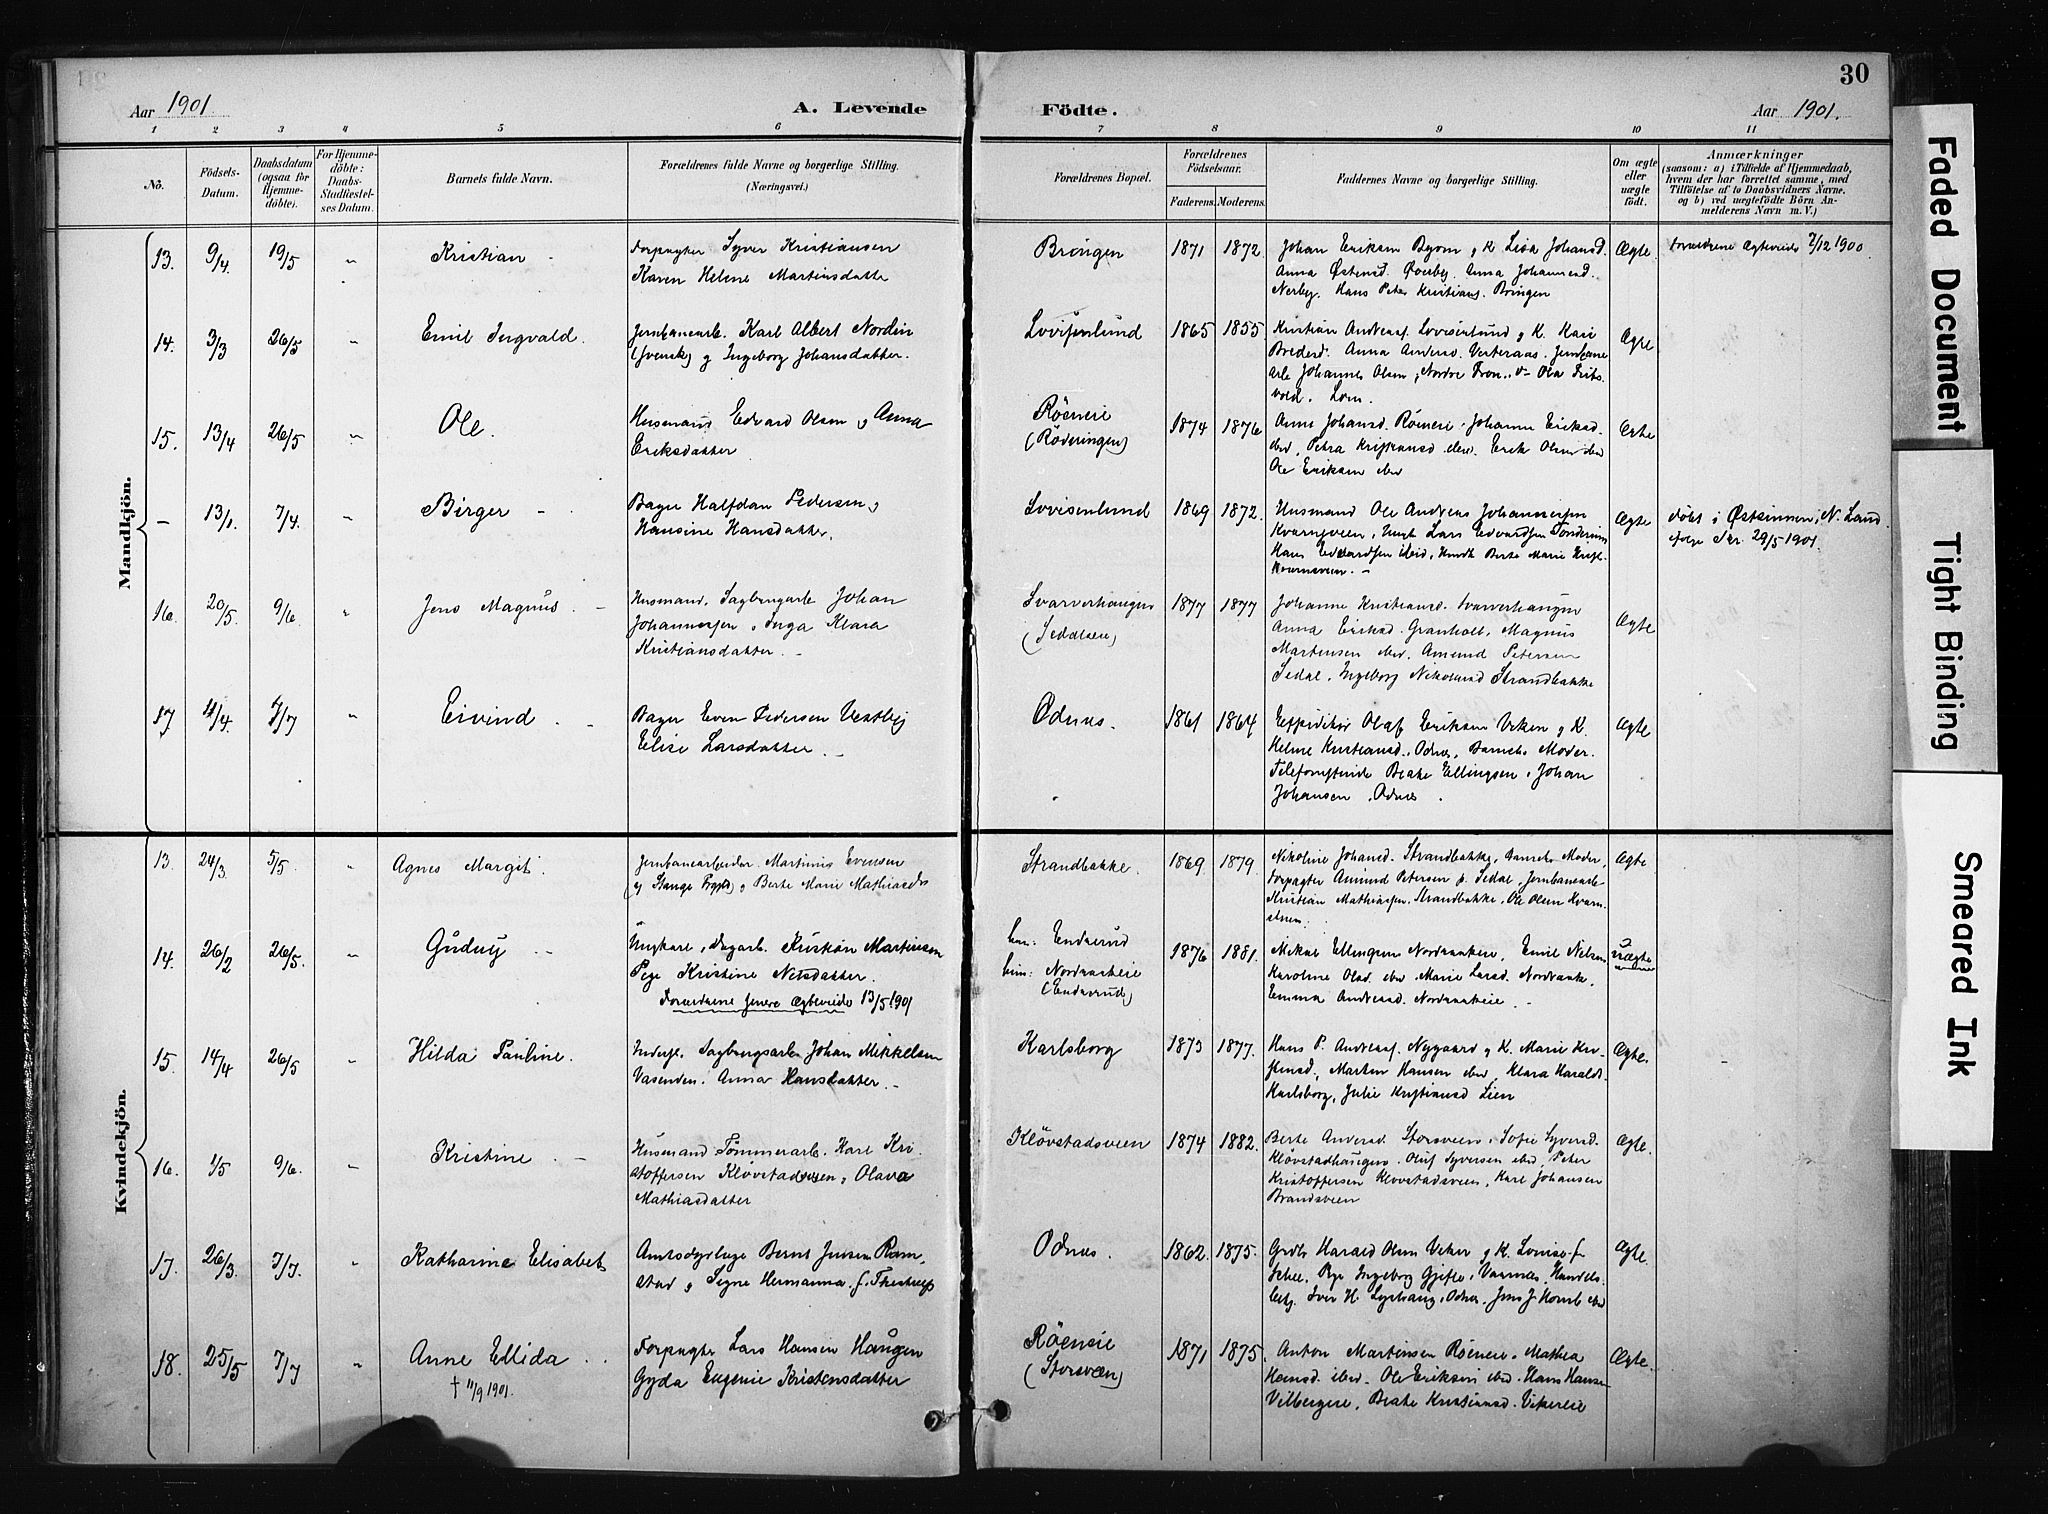 Aar 1901
A. Levende
Födte.
Aar 1901.
30
1 2 3 4 5 6 7 8 9 10 11
No.
Födsels-
Datum.
Daabsdatum
(ogsaa for
Hjemme-
döbte).
For Hjemme-
döbte:
Daabs-
Stadfæstel-
ses Datum.
Barnets fulde Navn.
Forældrenes fulde Navne og borgerlige Stilling.
(Næringsvei.)
Forældrenes Bopæl.
Forældrenes
Födselsaar.
Faderens. Moderens.
Faddernes Navne og borgerlige Stilling.
Om ægte
eller
uægte
födt.
Anmærkninger
(saasom: a) i Tilfælde af Hjemmedaab,
hvem der har forrettet samme, med
Tilföielse af to Daabsvidners Navne,
og b) ved uægtefödte Börn An-
melderens Navn m. V.)
Mandkjön.
13. 9/4 19/5 " Kristian -
Forpagter Syver Kristiansen
Karen Helene Martinsdatter
Brøngen 1871 1872.
Johan Eriksen Byom og K. Lisa Johansd.
Anna Østensd. Øverby. Anna Johannesd.
Nerby. Hans Peter Kristians. Bringen
Ægte. Forældrene Ægteviede 7/12 1900
14. 3/3 26/5 " Emil Ingvald.
Jernbanearb. Karl Albert Nordin
(svensk) og Ingeborg Johansdatter.
Lovisenlund 1865 1855.
Kristian Andreass. Lovisenlund og K. Kari
Bredesd. Anna Andersd. Vesteraas. Jernbane
arb. Johannes Olsen, Nordre Fron. Ola
vold. Lom.
Ægte
15. 13/4 26/5 " Ole.
Husmand Edvard Olsen og Anna
Eriksdatter
Röeneie
(Röderingen)
1874 1876
Anne Johansd. Röeneie. Johanne Eriksd.
ibid, Petra Kristiansd ibid. Erik Olsen ibid
Ole Eriksen ibid
Ægte
- 13/1. 7/4. " Birger -
Bager Halfdan Pedersen og
Hansine Hansdatter.
Lovisenlund 1869 1872.
Husmand Ole Andreas Johannessen
Kvarnsveen, Ungk Lars Edvardsen
Hans Edvardsen ibid, Berte Marie
Kvarnsveen. -
Ægte
døbt i Østsinnen, N. Land
ifølge Skr. 29/5 1901.
16. 20/5. 9/6. " Jens Magnus. -
Husmand, Sagbrugsarb Johan
Johannessen, Inga Klara
Kristiansdatter. -
Svarverhaugen
(Sedalseie)
1877 1877
Johanne Kristiansd. Svarverhaugen
Anna Eriksd. Granholt, Magnus
Martinsen ibid. Amund Petersen
Sedal, Ingeborg Nikolaisd Strandbakke
Ægte
17 4/4. 7/7 " Eivind. -
Bager Even Pedersen Vestby
Elise Larsdatter. -
Odnæs. 1861 1864
Expeditør Olaf Eriksen Viken og K.
Helene Kristiansd., Odnæs, Barnets Moder.
Telefonistinde Beate Ellingsen, Johan
Johansen, Odnæs.
Ægte
Kvindekjön.
13. 24/3. 5/5. " Agnes Margit.
Jernbanearbeider Martinus Evensen
og Berte Marie Mathiasdtr
Strandbakke. 1869. 1879.
Nikoline Johansd. Strandbakke, Barnets Moder
Forpagter Amund Petersen p. Sedal, Jernbanearb
Kristian Mathiassen, Strandbakke, Ole Olsen Kvarn-
Ægte.
14. 26/2 26/5. " Gudny -
Ungkarl, Dagarb. Kristian Martinsen
Pige Kristine Nilsdatter.
Forældrene senere Ægteviede 13/5 1901
han: Enderud
hun: Nordraakeie
(Enderud)
1876 1881.
Mikal Ellingsen Nordraakeie, Emil Nilsen
Karoline Olsd. ibid. Marie Larsd. Nordraake,
Emma Andreasd. Nordraakeie. -
uægte
15. 14/4 26/5 " Hilda Pauline.
Inderst. Sagbrugsarb. Johan Mikkelsen
Vasenden. Anna Hansdatter. -
Karlsborg 1873 1877.
Hans P. Andreass. Nygaard og K. Marie Kri-
stensd., Martin Hansen ibid, Klara Haralds.
Karlsborg, Julie Kristiansd Lien
Ægte.
16. 1/5 9/6. " Kristine. -
Husmand Tømmerarb. Karl Kri-
stoffersen Kløvstadsveen, Olava
Mathiasdatter
Kløvstadsveen 1874 1882.
Berte Andersd. Storsveen, Sofie Syversd.
Kløvstadhaugen. Oluf Syversen ibid, Peter
Kristoffersen Kløvstadsveen, Karl Johansen
Brandsveen
Ægte.
17. 26/3. 7/7. " Katharine Elisabet
Amtsdyrlæge Bernt Jensen Ram-
stad og Signe Hermanna f. Thistrup
Odnæs. 1862. 1875.
Grdbr Harald Olsen Viker og K. Louise f.
Schee. Pige Ingeborg Gjefle, Vaarnæs, Handels-
betj. Iver H. Odnæs, Jens J. ibid
Ægte.
18. 25/5 7/7 " Anne Ellida. .
† 11/9 1901.
Forpagter Lars Hansen Haugen
Gyda Eugenie Kristensdatter
Röeneie
(Storsveen)
1871 1875.
Anton Martinsen Röeneie, Mathea
Hansd. ibid. Ole Eriksen ibid. Hans Hansen
Vilbergeie, Beate Kristiansd. Vikereie
Ægte.
Faded Document
Tight Binding
Smeared Ink